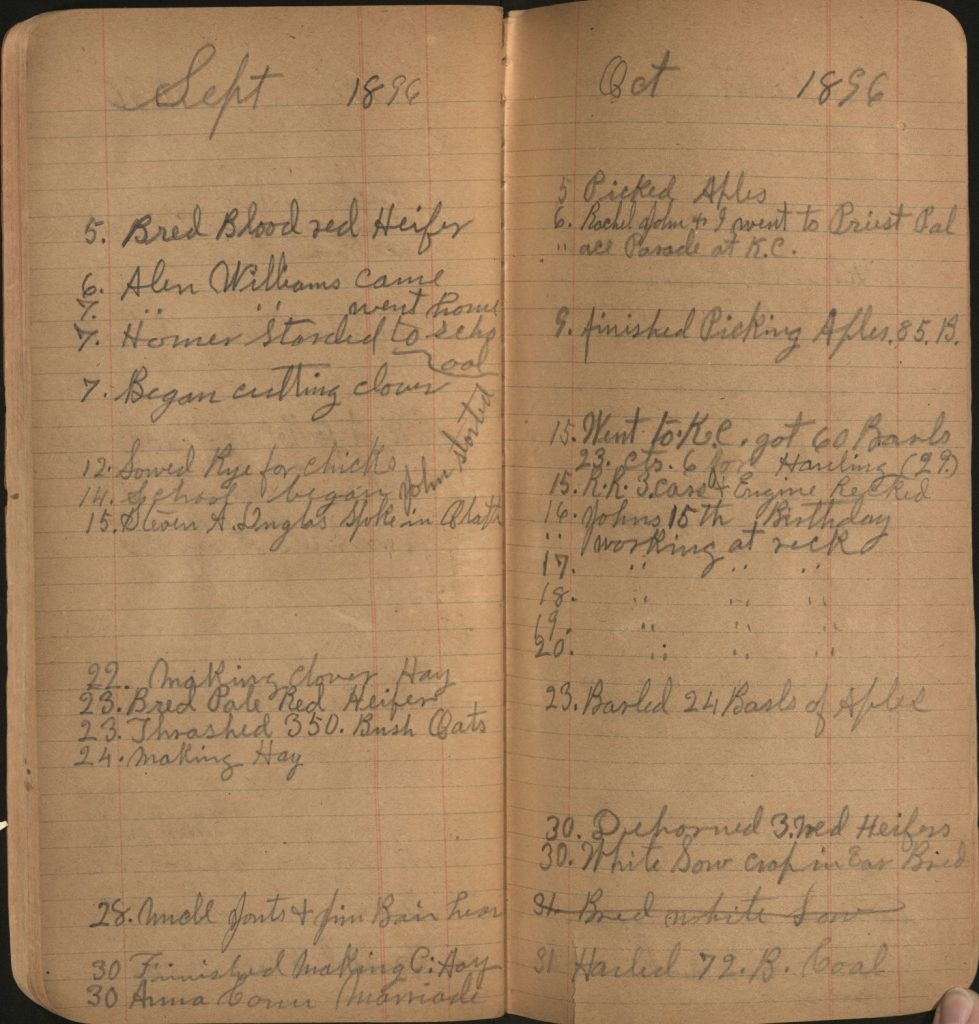 Sept 1896
5. Bred Blood red Heifer
6. Alen Williams came
7. " " went home
7. Homer Started to scho
ool
7. Began cutting clover
12. Sowed Rye for chicks
14. School began John started
15. Steven A. spoke in Olath
22. Making clover Hay
23. Bred Pale Red Heifer
23. Thrashed 350. Bush Oats
24. Making Hay
28. Uncle & Jim Bair hear
30 Finished Making C. Hay
30 Anna
Oct 1896
5 Picked Aples
6. Rachel John & I went to Priest Pal
" ace Parade at K.C.
9. finished Picking Aples. 85. B.
15. Went to K.C. got 60 Barls
23. cts. 6 for Hauling (29.)
15. R.R. 3 cars & Engine Recked
16. Johns 15th Birthday
" working at reck
17. " " "
18. " " "
19. " " "
20. " " "
23. Barled 24 Barls of Aples
30. Dehorned 3. red Heifers
30. White Sow crop in Ear Bred
31. Bred white Sow
31 Hailed 72. B. Coal